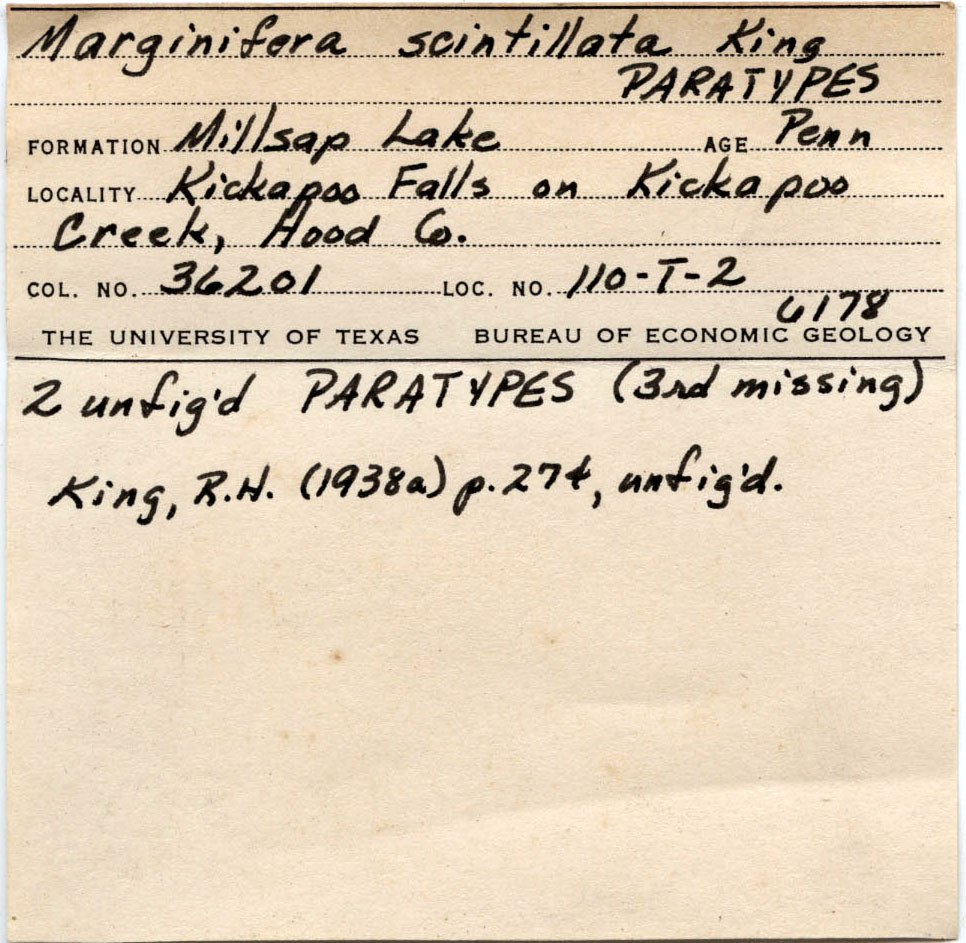 Marginifera scintillata King
PARATYPES
FORMATION Millsap Lake AGE Penn
LOCALITY Kickapoo Falls on Kickapoo
Creek, Hood Co.
COL. NO. 36201 LOC. NO. 110-T-2
6178
THE UNIVERSITY OF TEXAS BUREAU OF ECONOMIC GEOLOGY
2 unfig'd PARATYPES (3rd missing)
King, R.H. (1938a) p. 274, unfig'd.